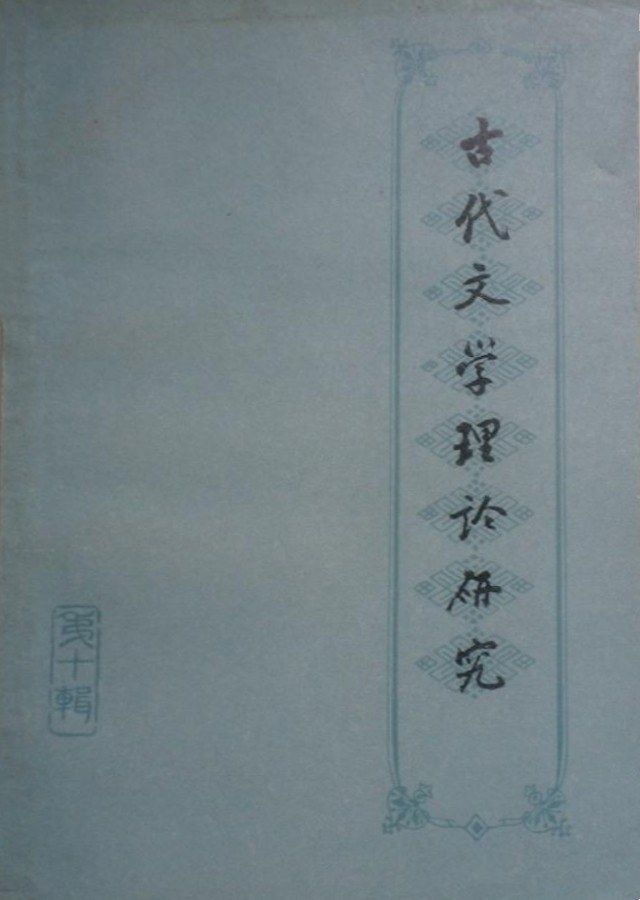 古代文学理论研究
第十輯